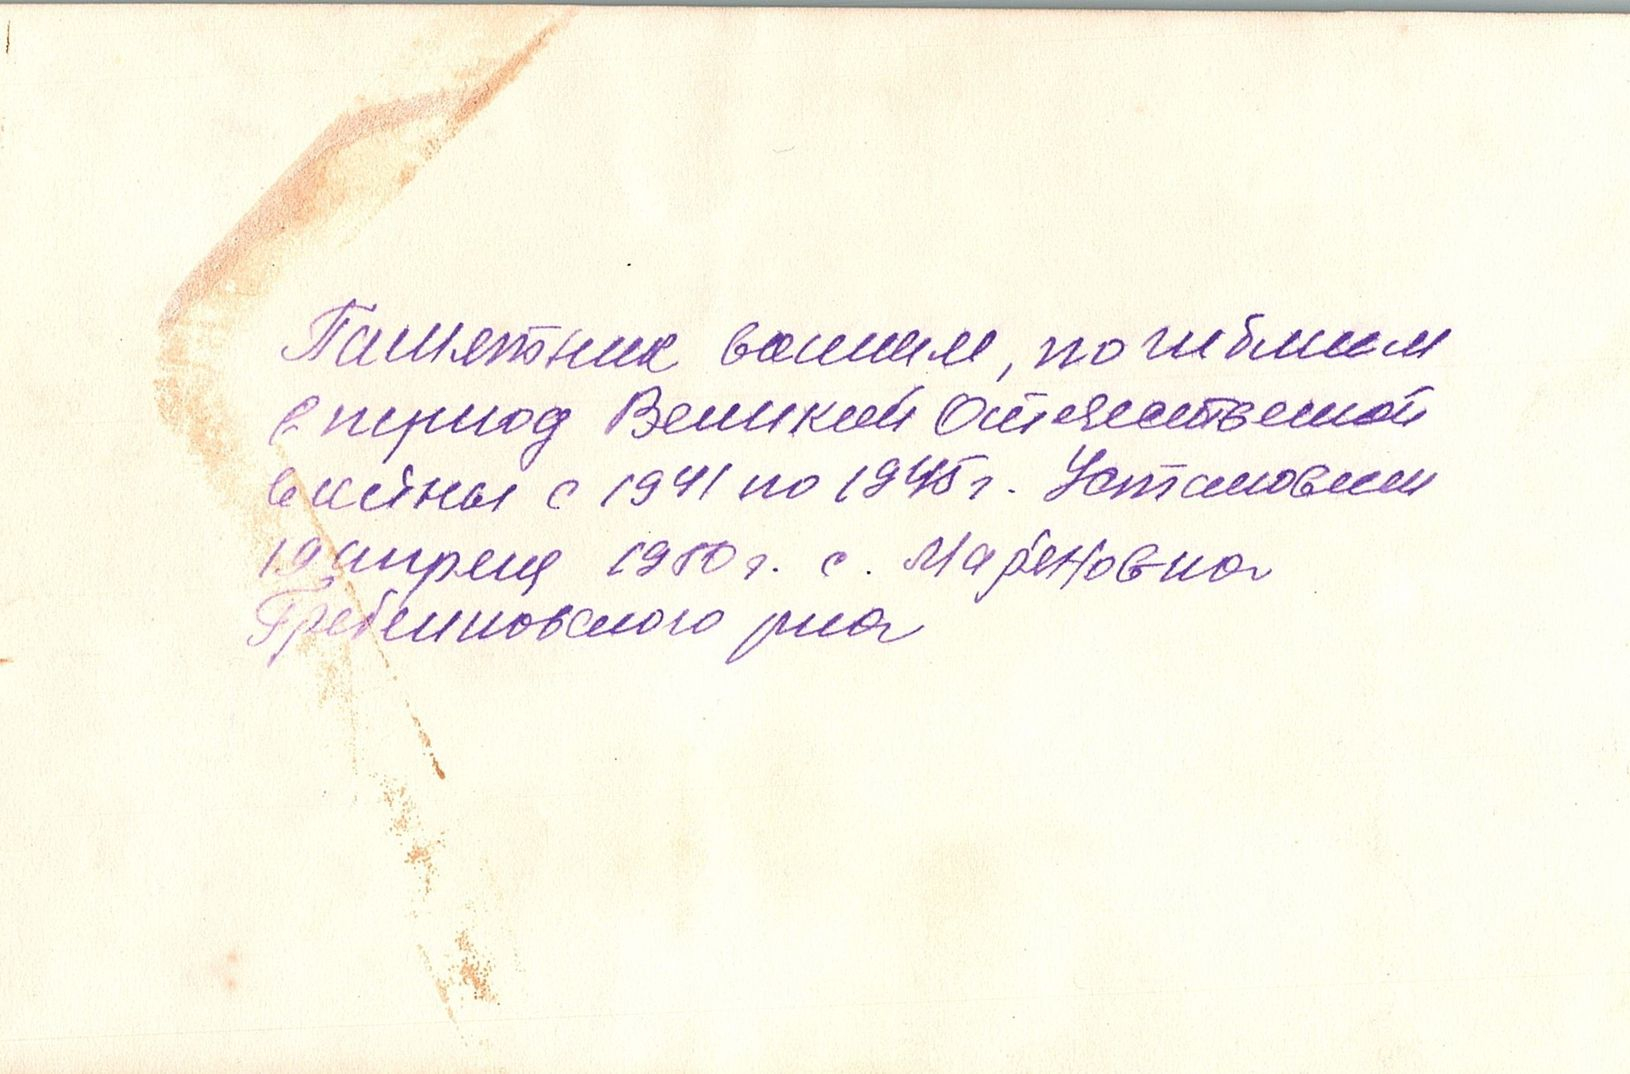 Памятник воинам, погибшим
в период Великой Отечественной
войны с 1941 по 1945 г. Установлен
19 апреля 1980 г. с. Марьяновка
Гребенковского р-на